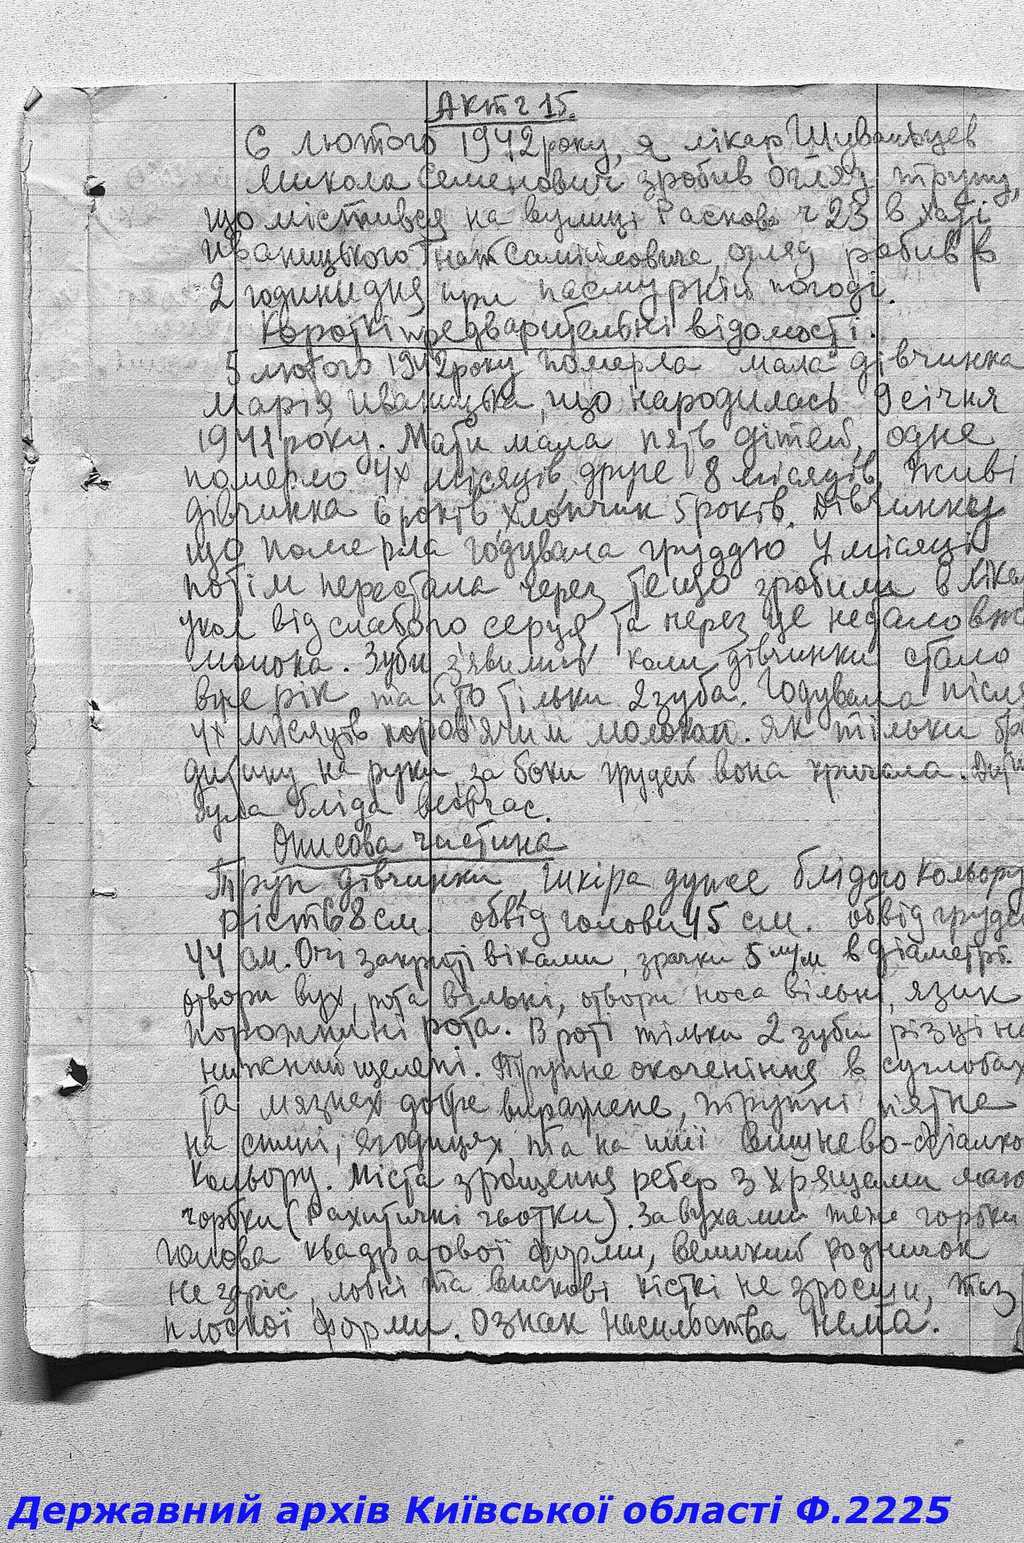 Акт ч 15.
6 лютого 1942 року, я лікар Шувальцев
Микола Семенович зробив огляд трупу,
що містився на вулиці Раскова ч 23 в хаті
Иваницького Гнат огляд робив в
2 години дня при пасмурній погоді.
Короткі предварительні відомості.
5 лютого 1942 року померла мала дівчинка
Марія Иваницька, що народилась 9 січня
1941 року. Мати мала пять дітей, одне
померло 4х місяців друге 8 місяців, Живі
дівчинка 6 років, хлопчик 5 років. Дівчинку
що померла годувала груддю 4 місяці
потім перестала через те що зробили в
укол від слабого серця, та через це не
молока. Зуби з'явились коли дівчинки стало
вже рік та й то тільки 2 зуба. Годувала після
4х місяців коров'ячим молоком. Як тільки
дитину на руки за боки грудей вона кричала.
була бліда весь час.
Описова частина
Труп дівчинки, шкіра дуже блідого кольору
ріст 68 см. обвід голови 45 см. обвід
44 см. Очі закриті віками, зрачки 5 м/м в діаметрі.
отвори вух, рота вільні, отвори носа вільні, язик
порожнині рота. В роті тільки 2 зуби різці на
нижній щелепі. Трупне окоченіння в суглобах
та мязнях добре виражене, трупні пятна
на спині, ягодицях, та на шиї вишнево-
кольору. Міста зрощення ребер з хрящами
горбки (Рахитичні чьотки). За вухами теж горбки
Голова квадратової форми, великий родничок
не заріс, лобні та вискові кісткі не зросли, таз
плоскої форми. Ознак насильства нема.
Державний архів Київської області Ф.2225